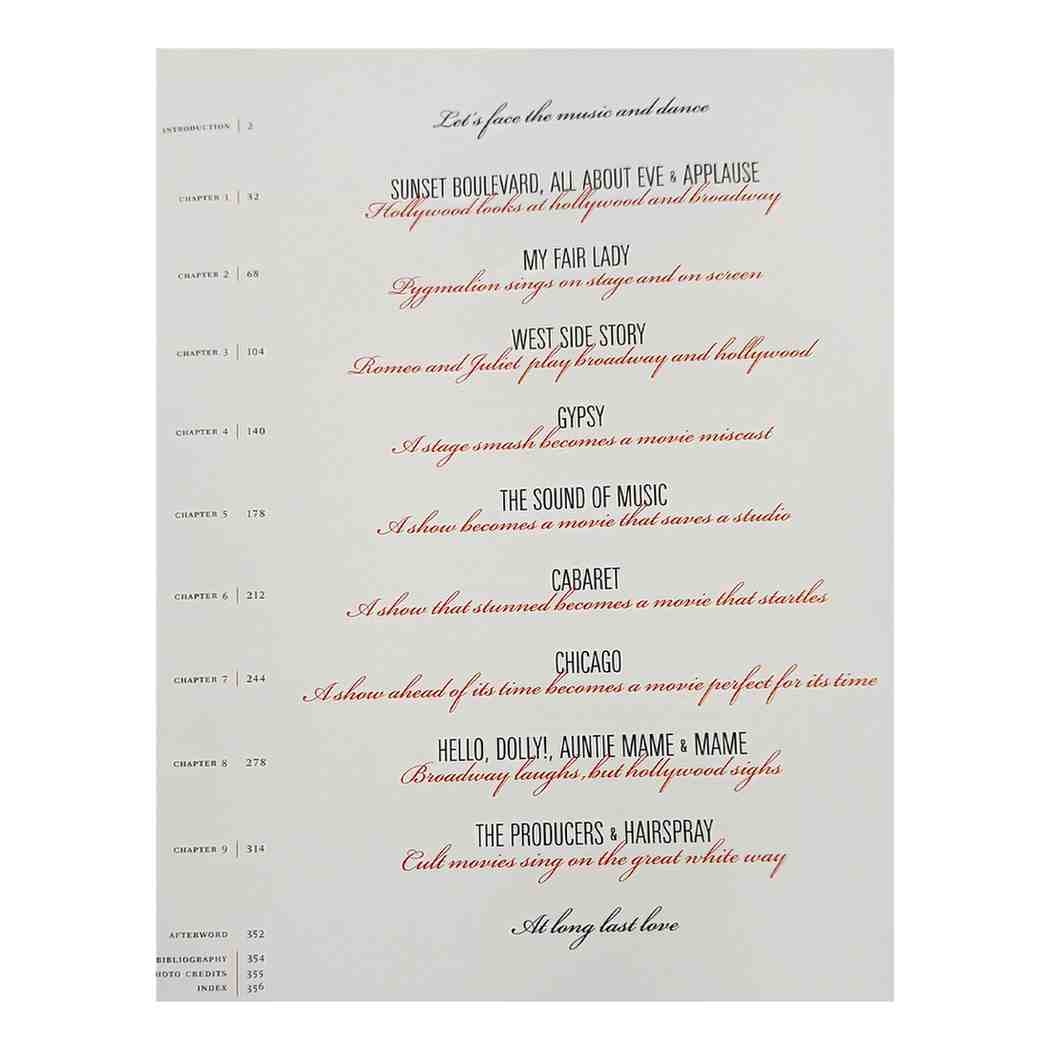 INTRODUCTION | 2 Let's face the music and dance
CHAPTER 1 | 32 SUNSET BOULEVARD, ALL ABOUT EVE & APPLAUSE
Hollywood looks at hollywood and broadway
CHAPTER 2 | 68 MY FAIR LADY
Pygmalion sings on stage and on screen
CHAPTER 3 | 104 WEST SIDE STORY
Romeo and Juliet play broadway and hollywood
CHAPTER 4 | 140 GYPSY
A stage smash becomes a movie miscast
CHAPTER 5 178 THE SOUND OF MUSIC
A show becomes a movie that saves a studio
CHAPTER 6 | 212 CABARET
A show that stunned becomes a movie that startles
CHAPTER 7 | 244 CHICAGO
A show ahead of its time becomes a movie perfect for its time
CHAPTER 8 278 HELLO, DOLLY!, AUNTIE MAME & MAME
Broadway laughs, but hollywood sighs
CHAPTER 9 | 314 THE PRODUCERS & HAIRSPRAY
Cult movies sing on the great white way
AFTERWORD 352 At long last love
BIBLIOGRAPHY | 354
HOTO CREDITS | 355
INDEX | 356